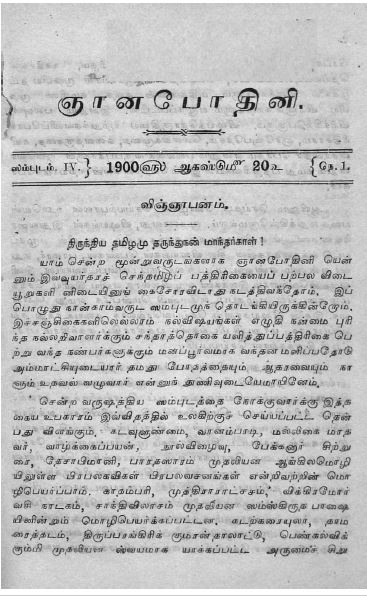 ஞானபோதினி.
ஸம்புடம். IV.} 1900ஹு ஆகஸ்டுமீ 20உ {நெ. 1.
விஞ்ஞாபனம்.
திருந்திய தமிழமு தருந்துகன் மாந்தர்காள் !
யாம் சென்ற மூன்றுவருடங்களாக ஞானபோதினி யென்
னும் இவ்வுயர்தரச் செந்தமிழ்ப் பத்திரிகையைப் பற்பல விடை
யூறுகளி னிடையினுங் கைசோரவிடாது நடத்திவந்தோம். இப்
பொழுது நான்காம்வருட ஸம்புடமுந் தொடங்கியிருக்கின்றோம்.
இச்சஞ்சிகைகளிலெல்லாம் நல்விஷயங்கள் எழுதி நன்மை புரி
ந்த நல்லறிவாளர்க்கும் சந்தாத்தொகை யளித்துப்பத்திரிகை பெ
ற்று வந்த நண்பர்களுக்கும் மனப்பூர்வமாக வந்தன மளிப்பதோடு
அம்மாட்சியுடையார் தமது போதத்தையும் ஆதரவையும் நா
ளும் உறவல் வழுவார் என்னுந் துணிவுடையேமாயினேம்.
சென்ற வருஷத்திய ஸம்புடத்தை நோக்குவார்க்கு இத்த
கைய உபகாரம் இவ்விதத்தில் உலகிற்குச் செய்யப்பட்ட தென்
பது விளங்கும். கடவுளுண்மை, வானம்பாடி, மல்லிகை மாத
வர், வாழ்க்கைப்பயன், நூல்விழைவு, பேக்கனார் சிற்று
ரை, தேசாபிமானி, பாரதஸாரம் முதலியன ஆங்கிலமொழி
யிலுள்ள பிரபலகவிகள் பிரபலவசனங்கள் என்றிவற்றின் மொ
ழிபெயர்ப்பாம். காதம்பரி, முத்திராராட்சசம், விக்கிரமோர்
வசி நாடகம், சார்க்கிவிலாசம் முதலியன ஸம்ஸ்கிருத பாஷை
யினின்றும் மொழிபெயர்க்கப்பட்டன. கடற்கரையுலா, தாம
ரைத்தடம், திருப்பரங்கிரிக் குமரன்தாலாட்டு, பெண்கல்விக்
கும்மி முதலியன ஸ்வயமாக யாக்கப்பட்ட அருமைச் சிறு